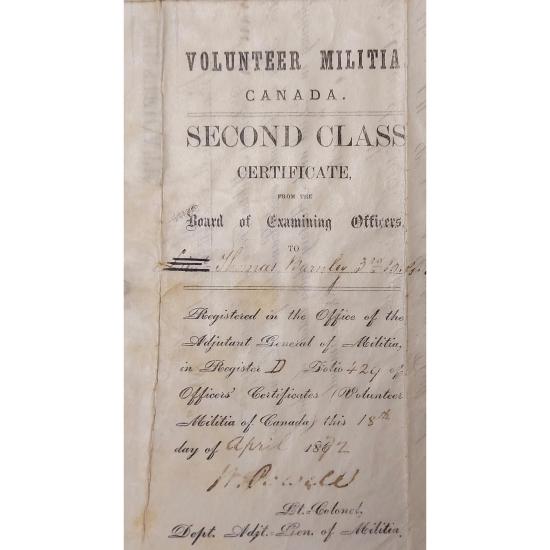 VOLUNTEER MILITIA
CANADA.
SECOND CLASS
CERTIFICATE,
FROM THE
Board of Examining Officers,
TO
Thomas Barnley 3rd
Registered in the Office of the
Adjutant General of Militia,
in Register D Folio 429 of
Officers' Certificates (Volunteer
Militia of Canada) this 18th
day of April 1872
W. Powell
Lt.-Colonel,
Dept. Adjt.-Gen. of Militia